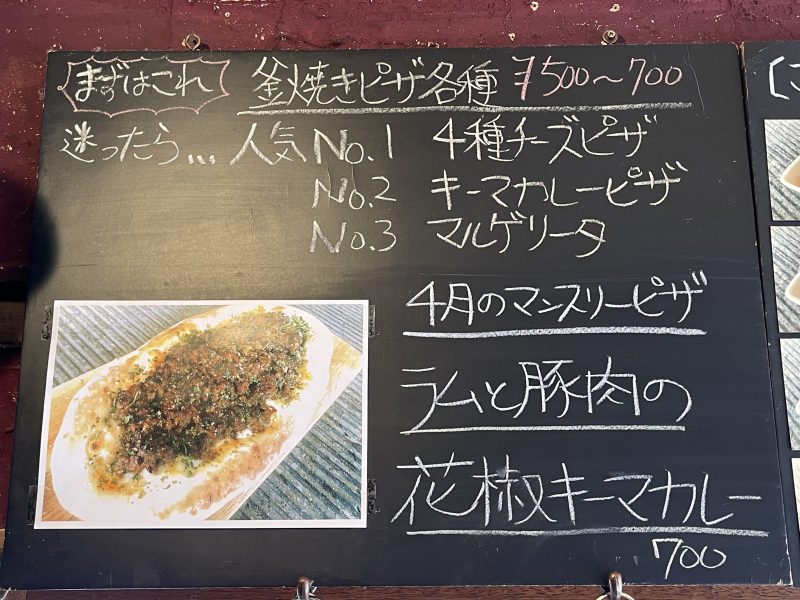 まずはこれ 釜焼きピザ各種 ¥500〜700
迷ったら... 人気 No.1 4種チーズピザ
No.2 キーマカレーピザ
No.3 マルゲリータ
4月のマンスリーピザ
ラムと豚肉の
花椒キーマカレー
700